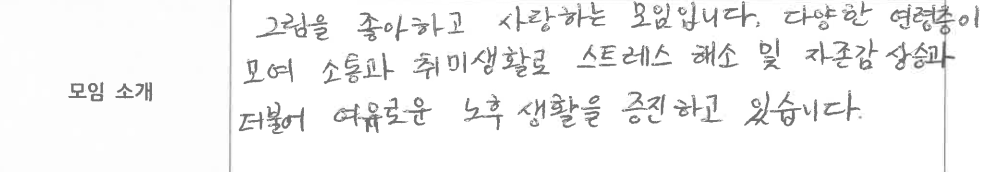 모임 소개
그림을 좋아하고 사랑하는 모임입니다. 다양한 연령층이
모여 소통과 취미생활로 스트레스 해소 및 자존감 상승과
더불어 여유로운 노후 생활을 증진하고 있습니다.